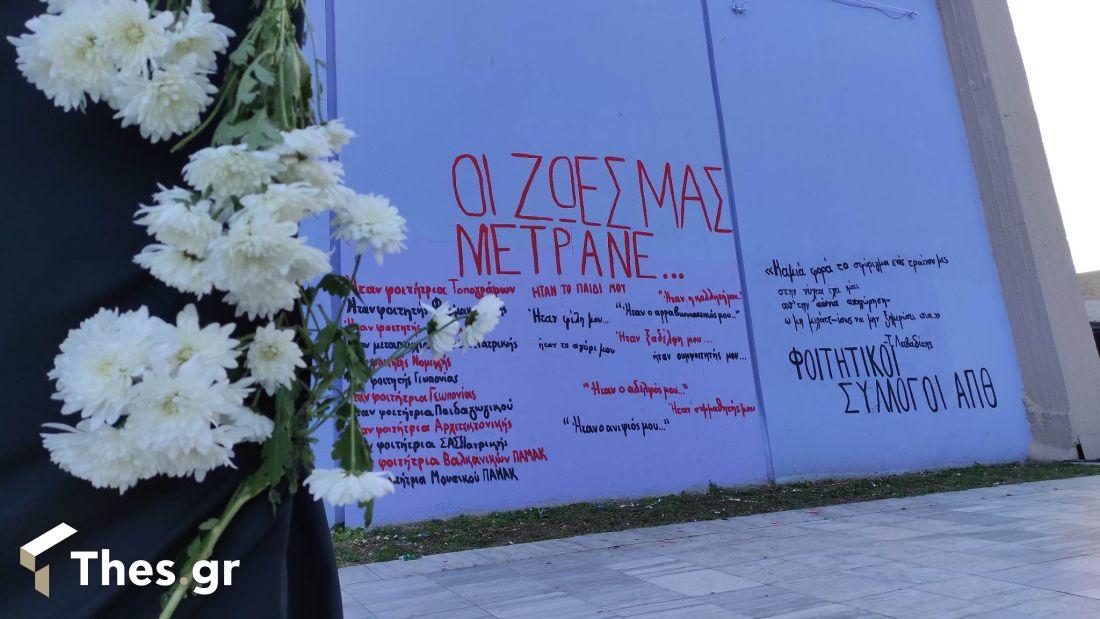 ΟΙ ΖΩΕΣ ΜΑΣ
ΜΕΤΡΑΝΕ...
Ήταν φοιτήτρια Τοπογράφων
Ήταν φοιτητής
Ήταν φοιτητής
φοιτητής Νομικής
φοιτητής Γεωπονίας
φοιτήτρια Γεωπονίας
φοιτήτρια Παιδαγωγικού
φοιτήτρια Αρχιτεκτονικής
φοιτήτρια ΣΑΣ Ιατρικής
φοιτήτρια Βαλκανικών ΠΑΜΑΚ
Μουσικού ΠΑΜΑΚ
ΗΤΑΝ ΤΟ ΠΑΙΔΙ ΜΟΥ
"Ήταν η κολλητή μου"
Ήταν φίλη μου...
"Ήταν ο αρραβωνιαστικός μου..."
Ήταν ξαδέλφη μου...
ήταν το αγόρι μου
ήταν συμφοιτητής μου...
"Ήταν ο αδελφός μου..."
Ήταν συμμαθητής μου
"Ήταν ο ανιψιός μου..."
«Καμιά φορά το σφύριγμα ενός τραίνου μες
στην νύχτα έχει κάτι
απ' την αιώνια αποχώρηση-
ω μη μιλάτε-ίσως να μην ξημερώσει ποτέ»
Τ. Λειβαδίτης
ΦΟΙΤΗΤΙΚΟΙ
ΣΥΛΛΟΓΟΙ ΑΠΘ
Thes.gr